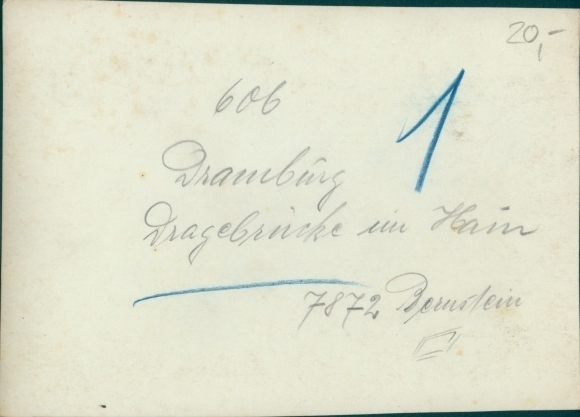 20,-
606
1
Dramburg
Dragebrücke im Hain
7872 Bernstein